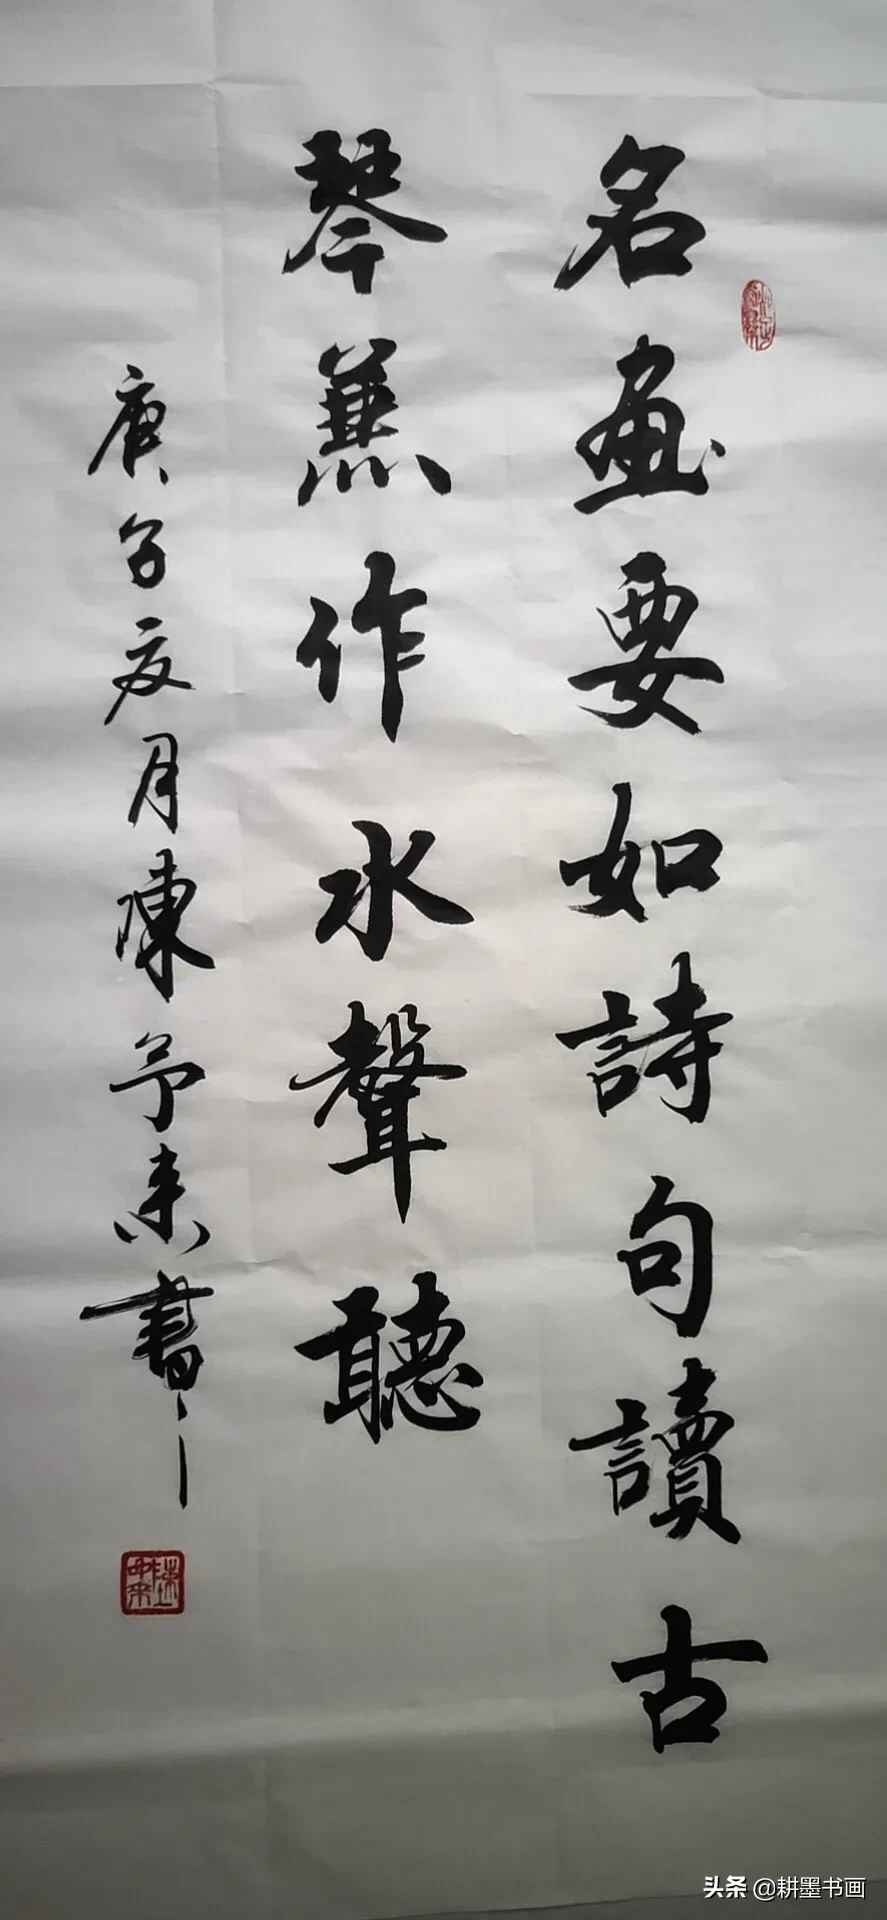 名畫要如詩句讀古
琴兼作水聲聽
庚子夏月陳予来書
头条 @耕墨书画